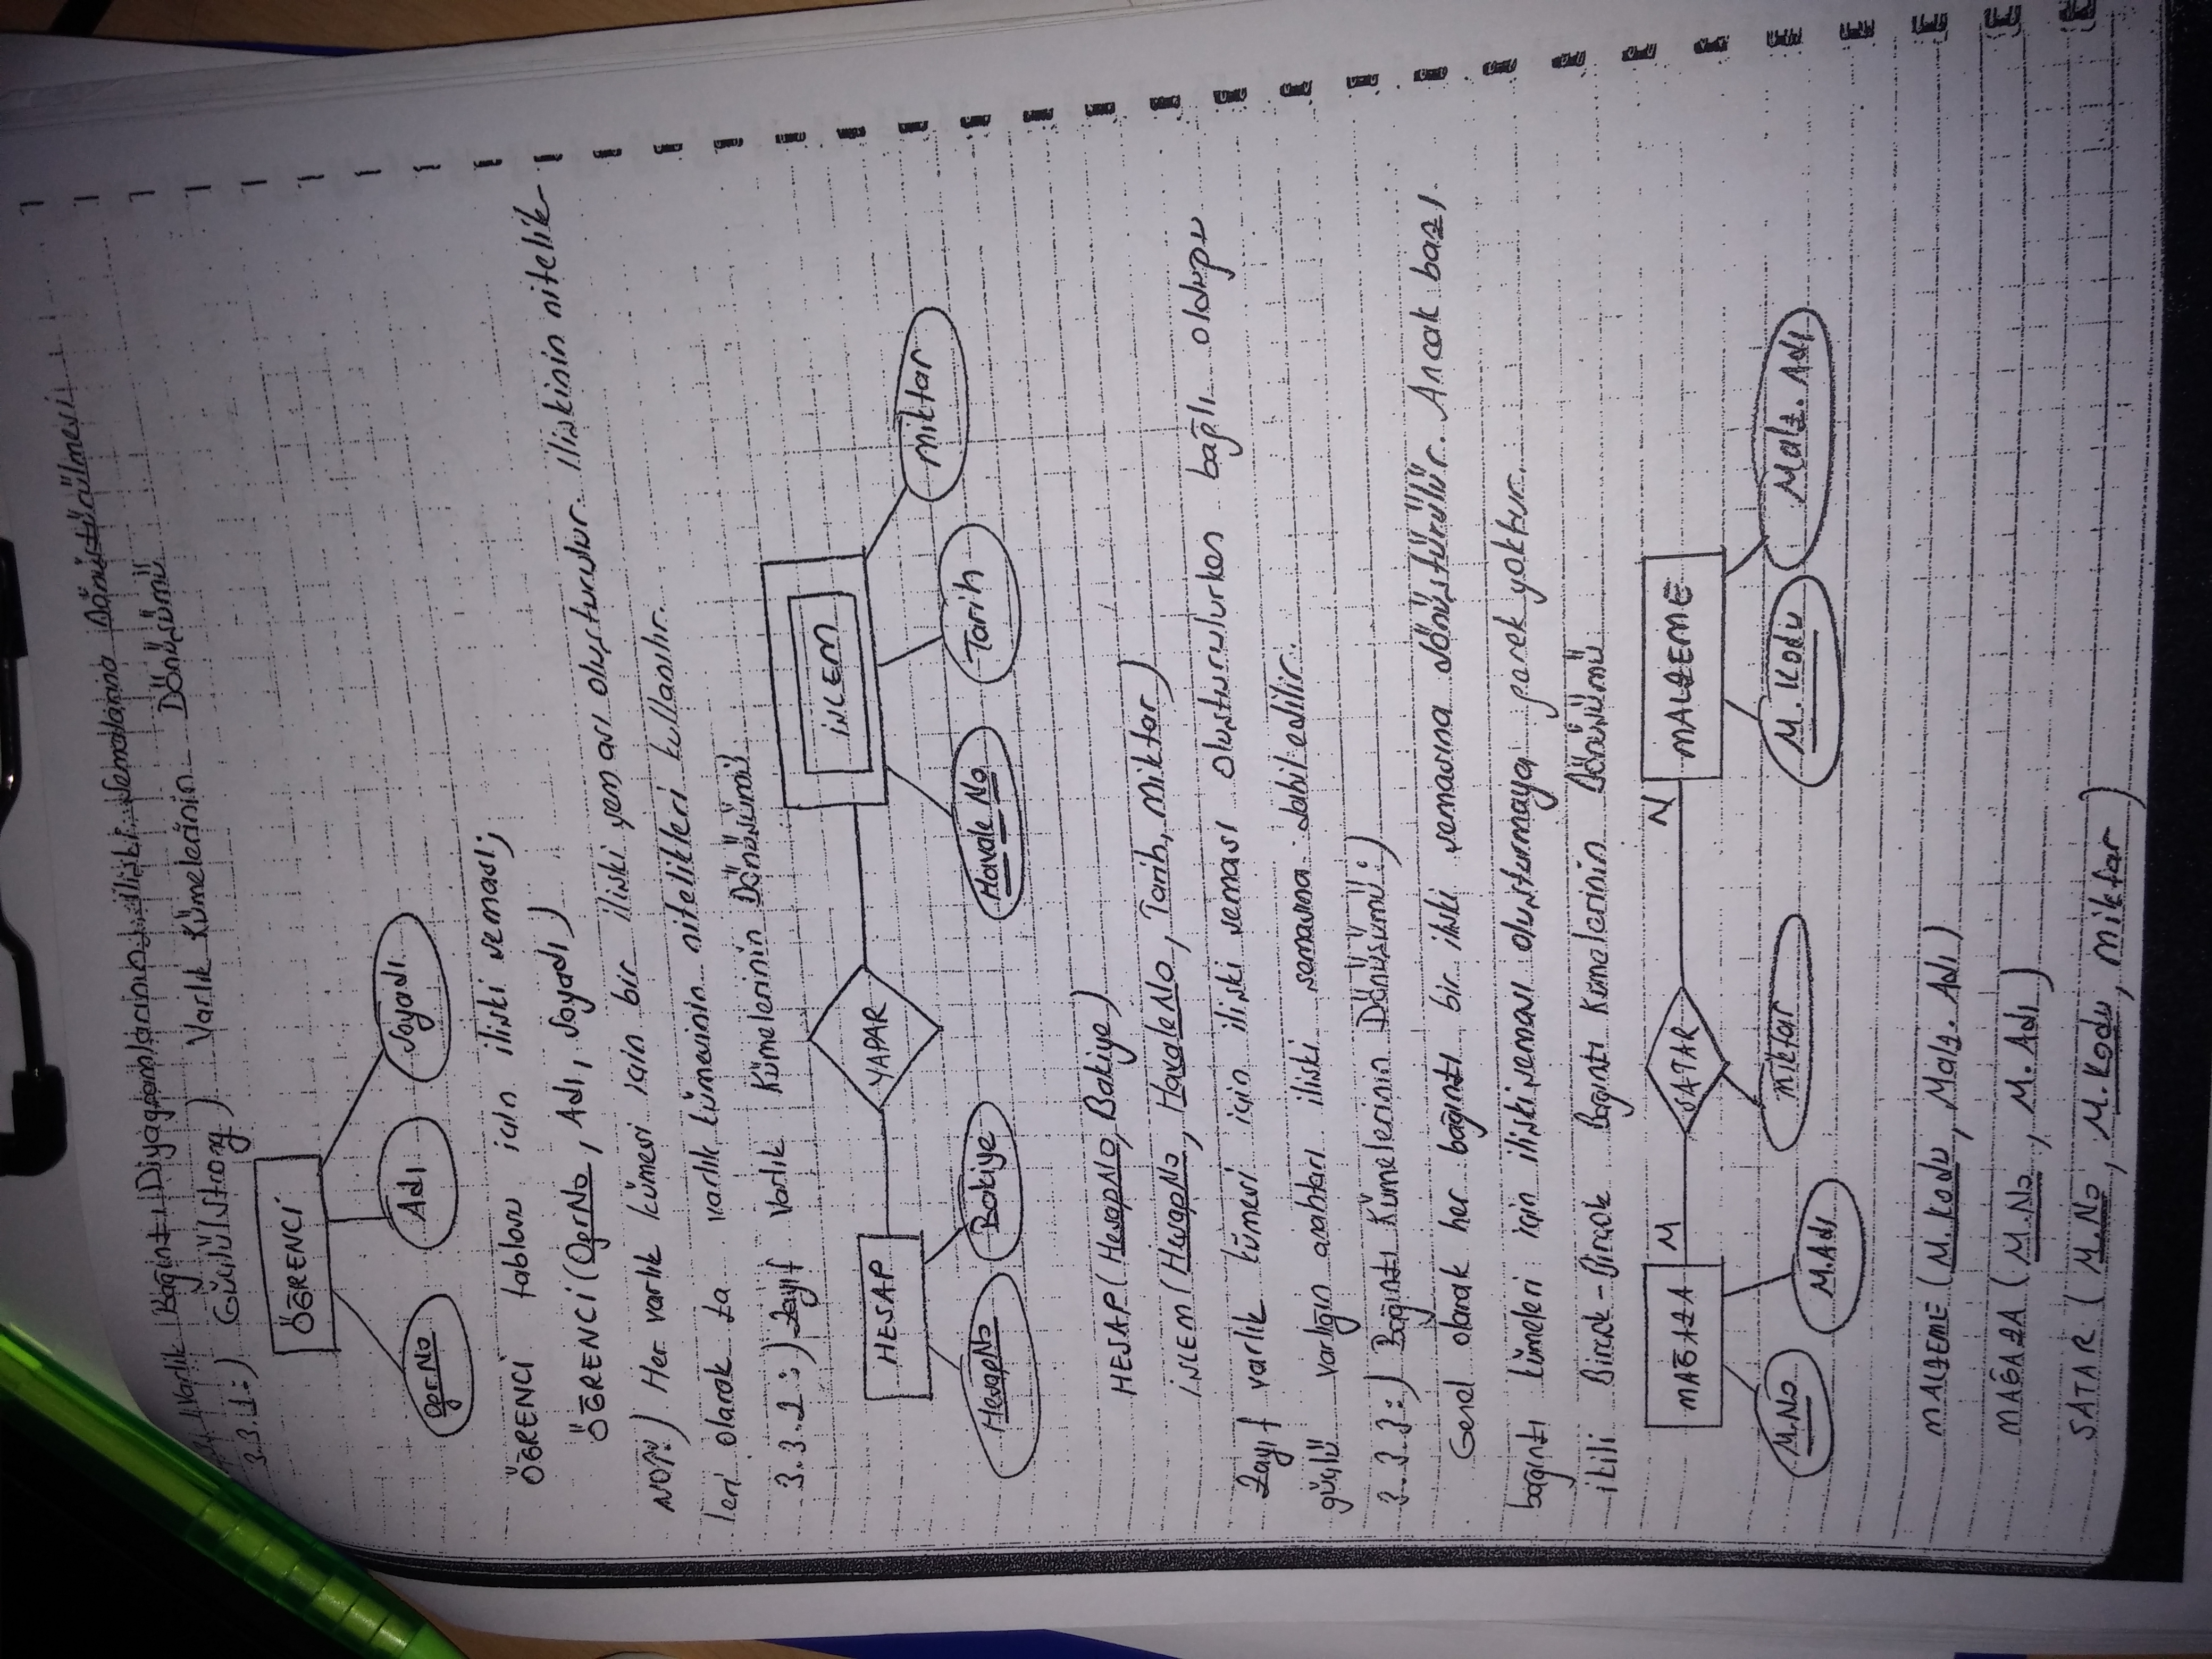 Varlık Bağıntı Diyagramlarının İlişki Şemalarına Dönüştürülmesi
3.3.1:) Güçlü(Strong) Varlık Kümelerinin Dönüşümü
ÖĞRENCİ
Ögr.No
Adı
Soyadı
ÖĞRENCİ tablosu için ilişki şeması;
ÖĞRENCİ(OgrNo, Adı, Soyadı)
NOT:) Her varlık kümesi için bir ilişki şeması oluşturulur. İlişkinin nitelik-
leri olarak ta varlık kümesinin nitelikleri kullanılır.
3.3.2:) Zayıf Varlık Kümelerinin Dönüşümü
HESAP
YAPAR
İŞLEM
HesapNo
Bakiye
Havale No
Tarih
Miktar
HESAP(HesapNo, Bakiye)
İŞLEM(HesapNo, HavaleNo, Tarih, Miktar)
Zayıf varlık kümesi için ilişki şeması oluşturulurken bağlı olduğu
güçlü varlığın anahtarı ilişki şemasına dahil edilir.
3.3.3:) Bağıntı Kümelerinin Dönüşümü:)
Genel olarak her bağıntı bir ilişki şemasına dönüştürülür. Ancak bazı
bağıntı kümeleri için ilişki şeması oluşturmaya gerek yoktur.
ikili Birçok-Birçok Bagıntı Kümelerinin Dönüşümü
MAĞAZA
M
SATAR
N
MALZEME
M.No
M.Adı
Miktar
M.Kodu
Malz.Adı
MALZEME(M.Kodu, Malz.Adı)
MAĞAZA(M.No, M.Adı)
SATAR(M.No, M.Kodu, Miktar)